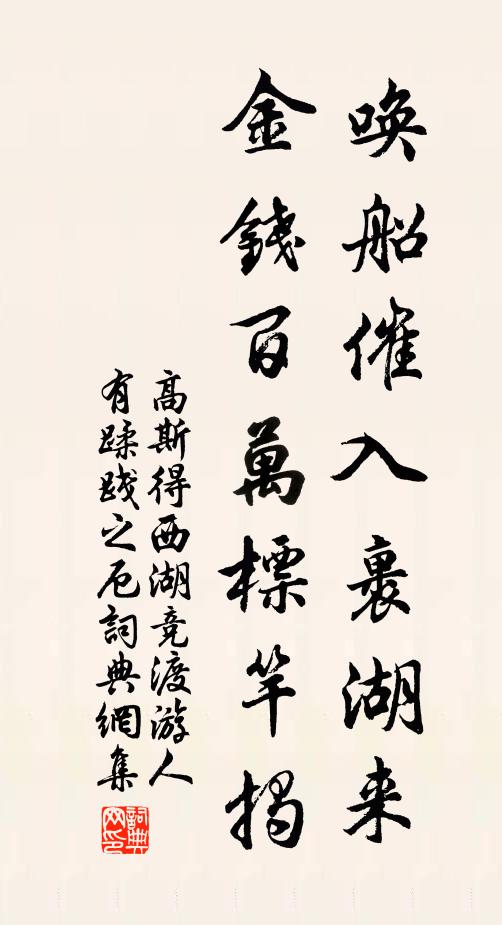 唤船催入裹湖来
金錢百萬標竿揭
高斯得西湖竞渡游人
有蹂践之厄詞典網集
詞典网印